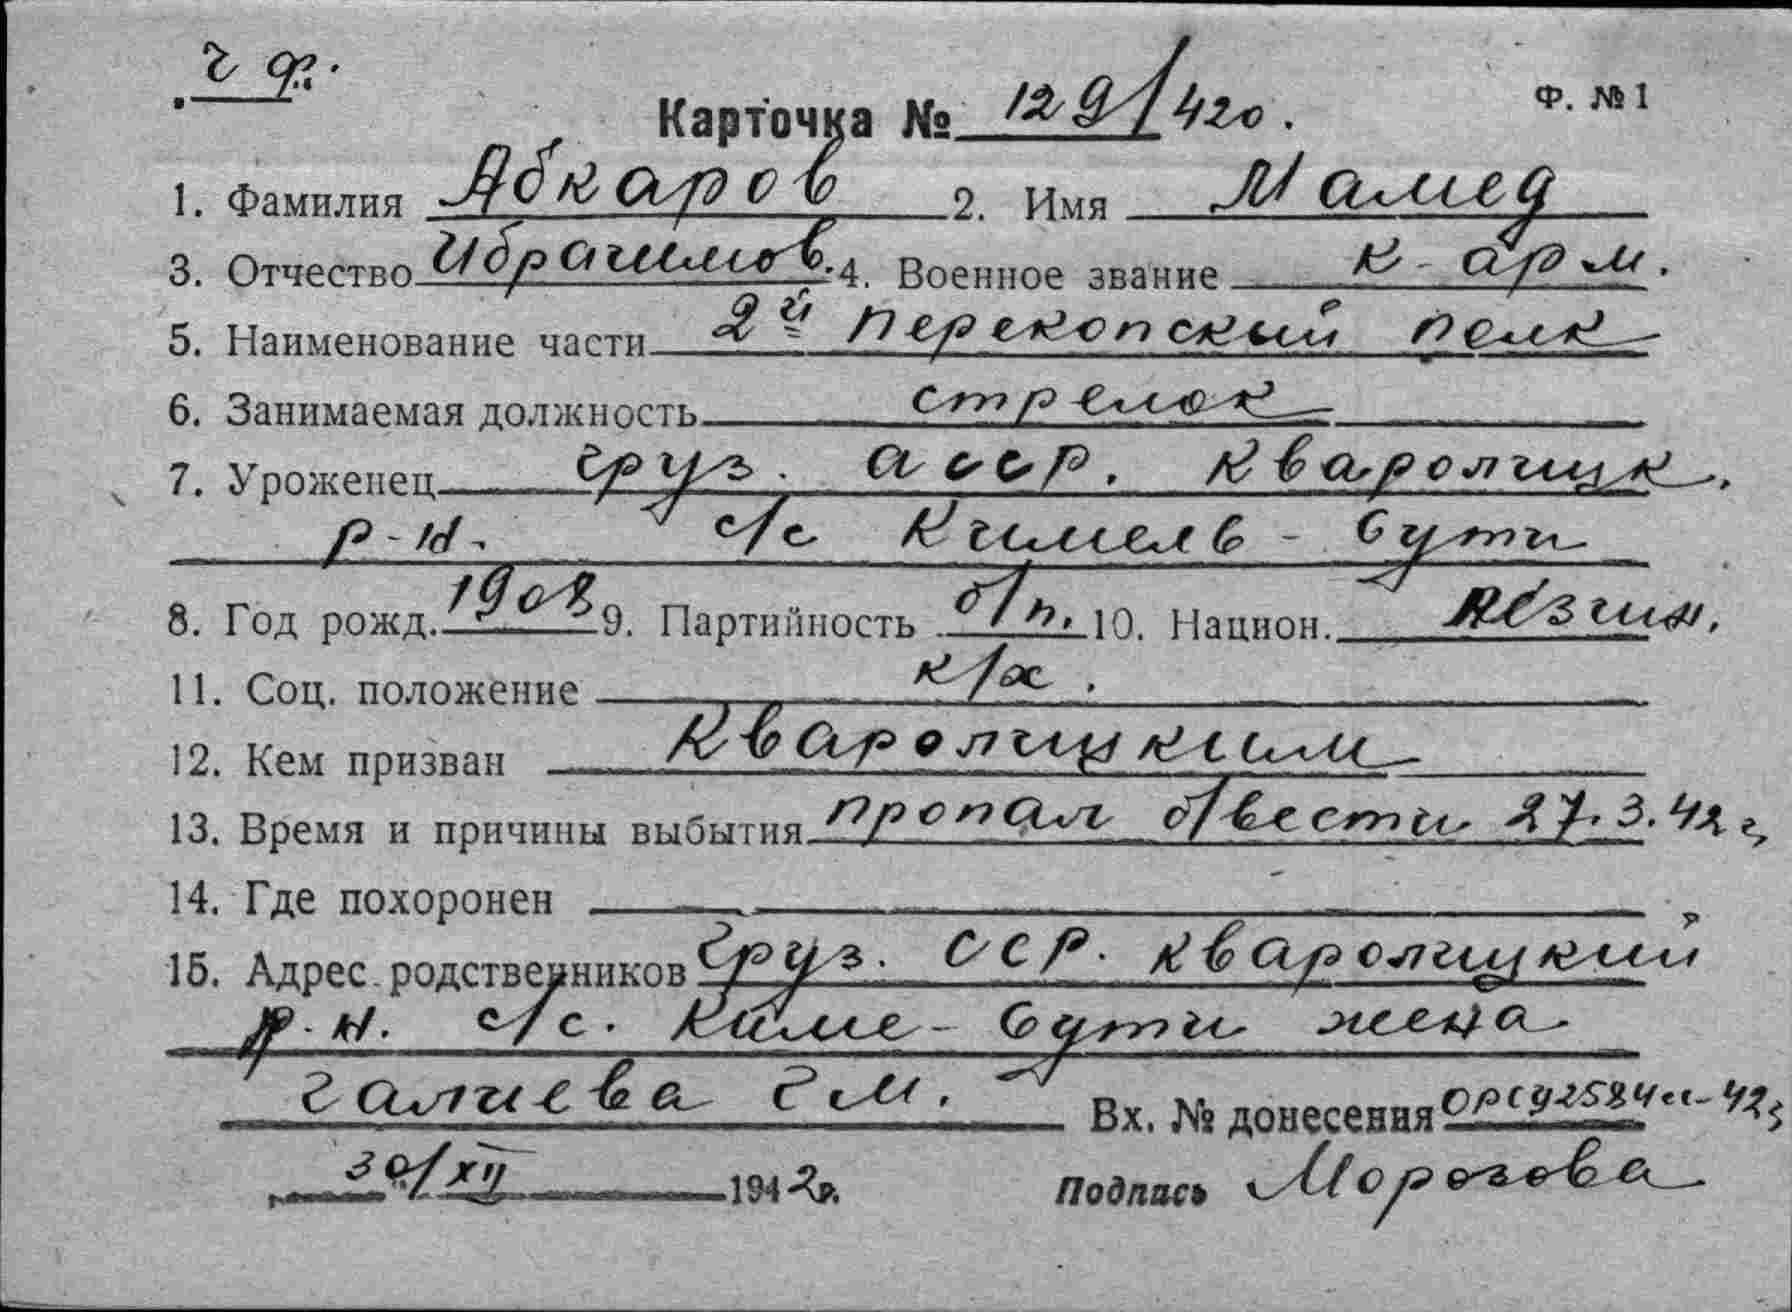 ч ф.
Карточка № 129/420.
Ф. № 1
1. Фамилия Абкаров 2. Имя Мамед
3. Отчество Ибрагимов. 4. Военное звание к-арм.
5. Наименование части 2й Перекопский полк
6. Занимаемая должность стрелок
7. Уроженец Груз. асср. Кваролицк.
р-н. с/с Кимель-Сути
8. Год рожд. 1908 9. Партийность б/п. 10. Национ. лезгин.
11. Соц. положение к/х.
12. Кем призван Кваролицким
13. Время и причины выбытия пропал б/вести 27.3.42 г.
14. Где похоронен
15. Адрес родственников Груз. ССР. Кваролицкий
р-н. с/с. Киме-Сути жена
Галиева Г М. Вх. № донесения 2584сс-42г
30/XII 1942г. Подпись Морозова